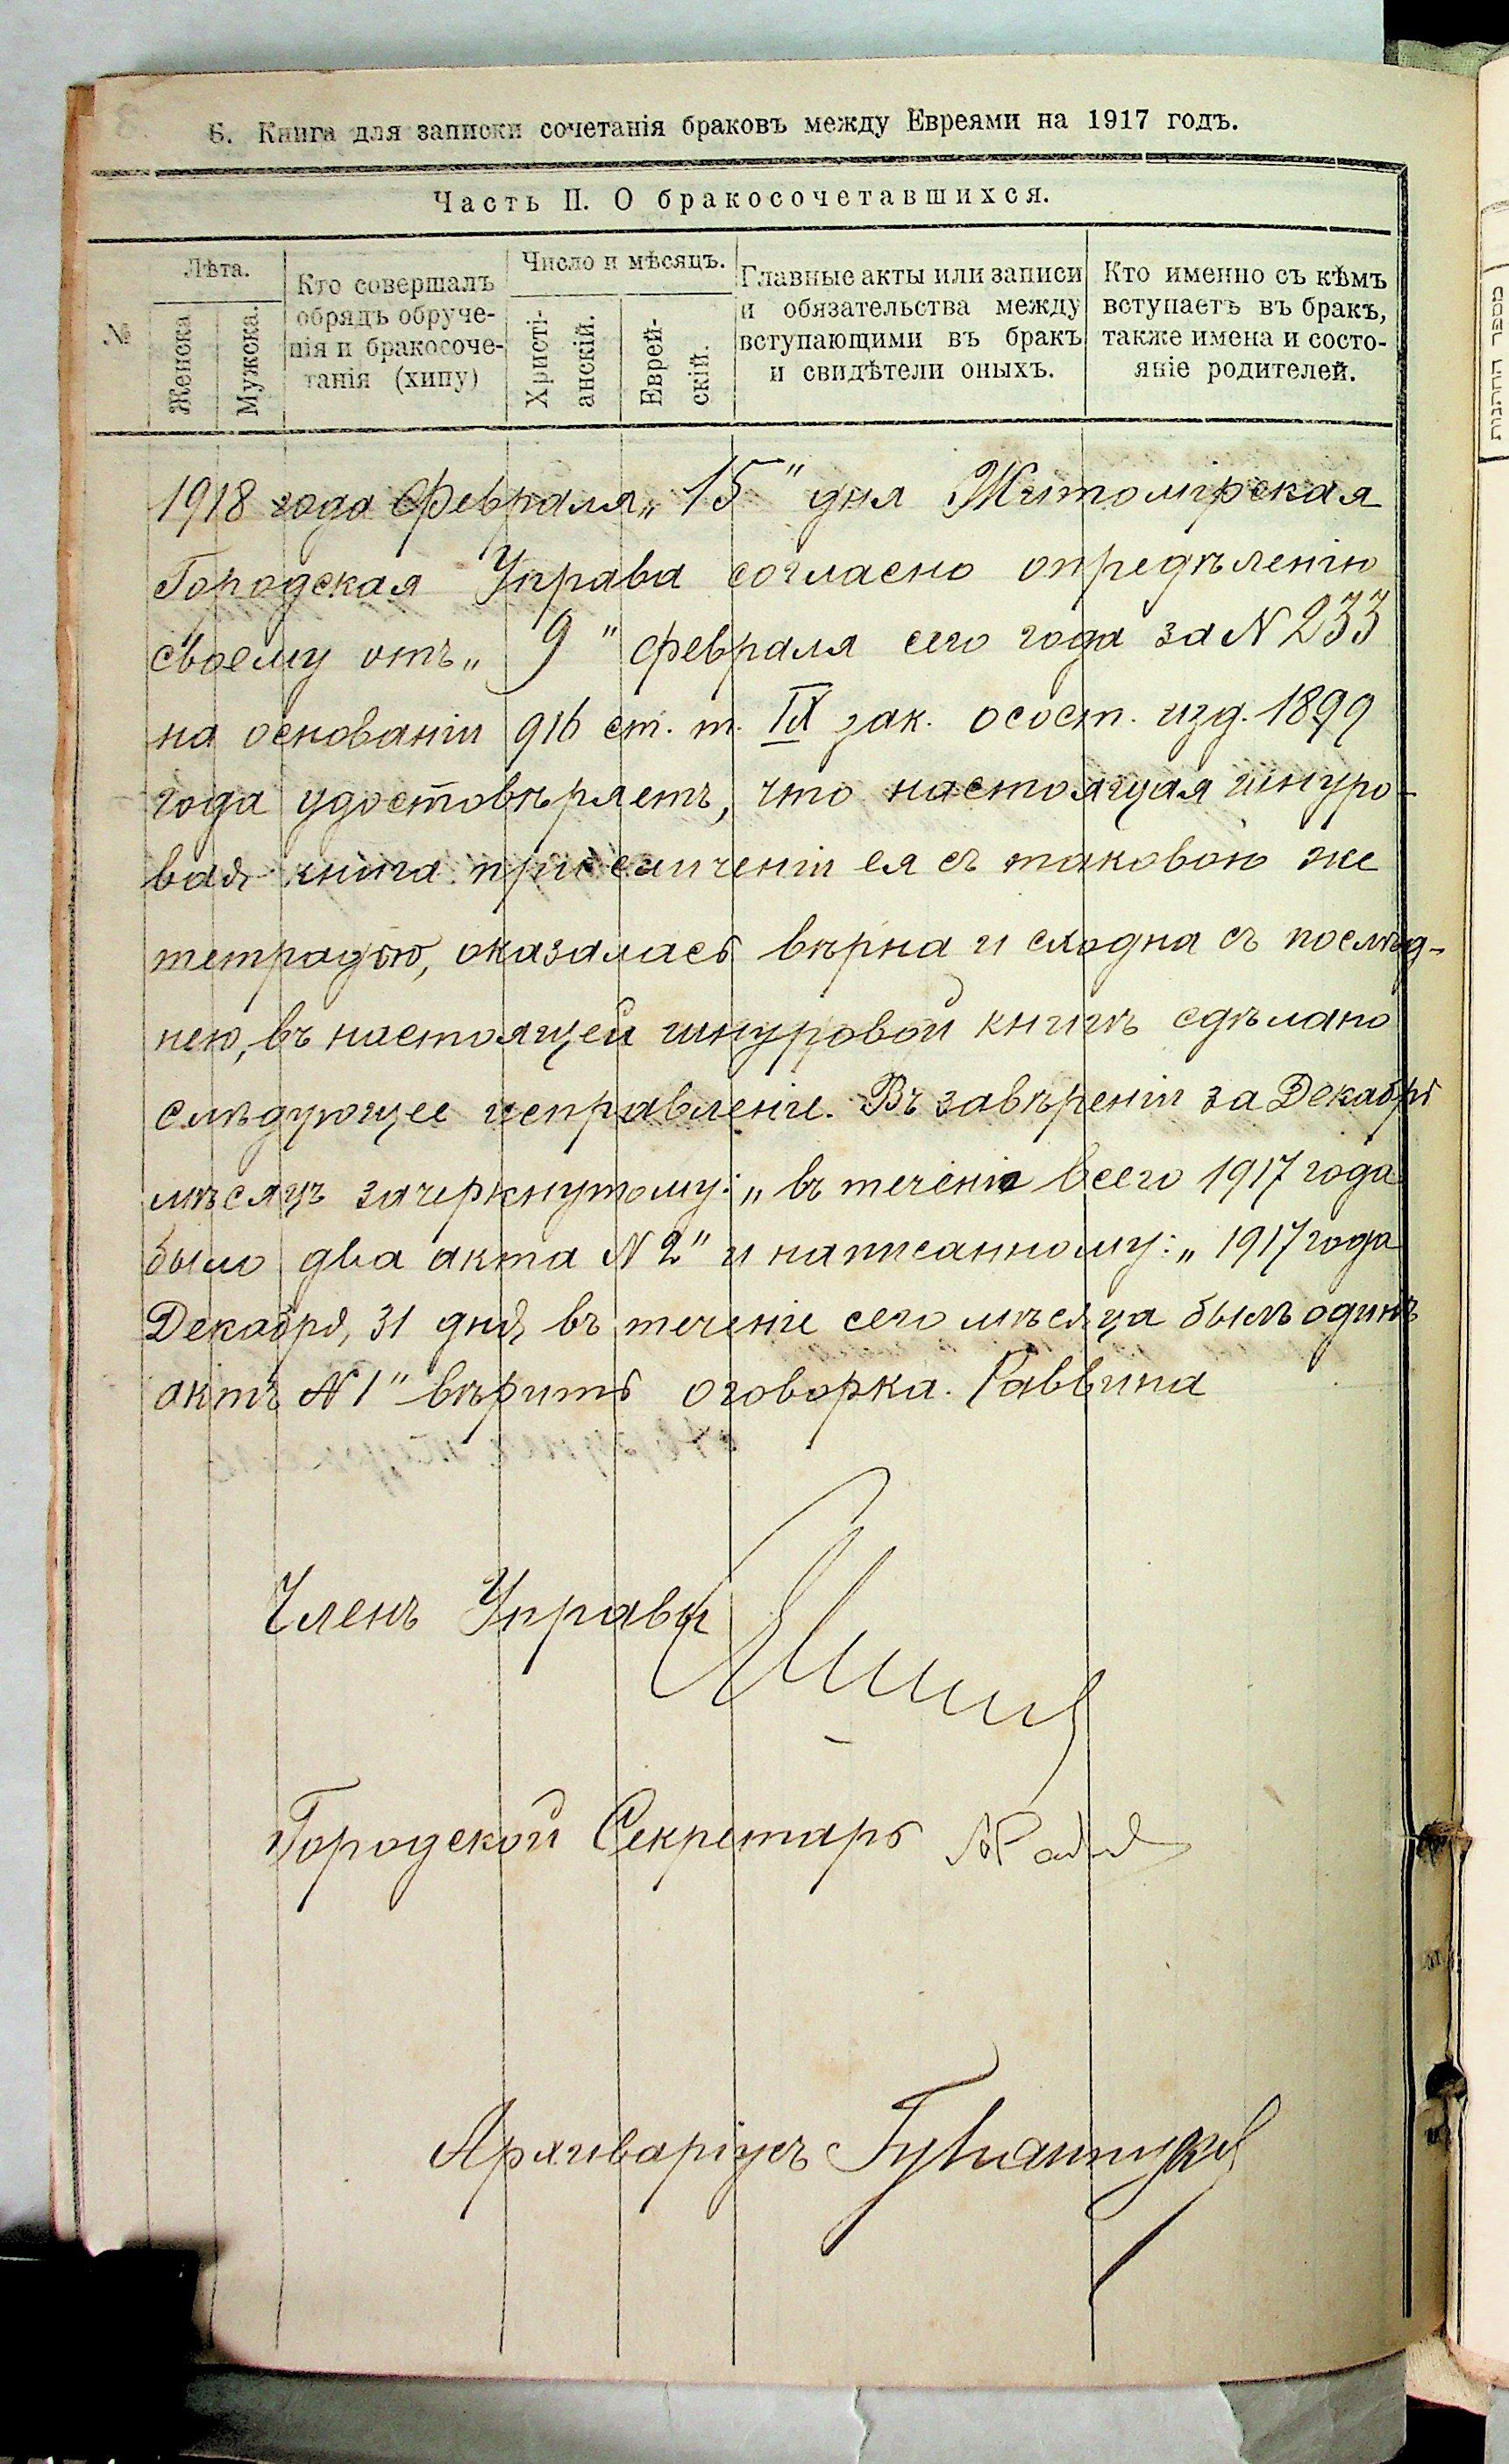 Б. Книга для записки сочетанія браковъ между Евреями на 1917 годъ.
Часть II. О бракосочетавшихся.
№
Лѣта.
Женска
Мужска.
Кто совершалъ
обрядъ обруче-
нія и бракосоче-
танія (хипу)
Число и мѣсяцъ.
Христі-
анскій.
Еврей-
скій.
Главные акты или записи
и обязательства между
вступающими въ бракъ
и свидѣтели оныхъ.
Кто именно съ кѣмъ
вступаетъ въ бракъ,
также имена и состо-
яніе родителей.
1918 года Февраля „15" дня Житомірская
Городская Управа согласно опредѣленію
своему отъ „9" февраля сего года за N 233
на основаніи 916 ст. т. IX зак. о сост. изд. 1899
года удостовѣряетъ, что настоящая шнуро-
вая книга при сличеніи ея съ таковою же
тетрадью, оказалась вѣрна и сходна съ послѣд-
нею, въ настоящей шнуровой книгѣ сдѣлано
слѣдующее исправленіе. Въ завѣреніи за Декабрь
мѣсяцъ зачеркнутому: „въ теченіи всего 1917 года
было два акта N 2" и написанному: „1917 года
Декабря, 31 дня, въ теченіе сего мѣсяца былъ одинъ
актъ N 1" вѣрить оговорка. Раввина
Членъ Управы
Городской Секретарь
Архиваріусъ
מספר החתנות